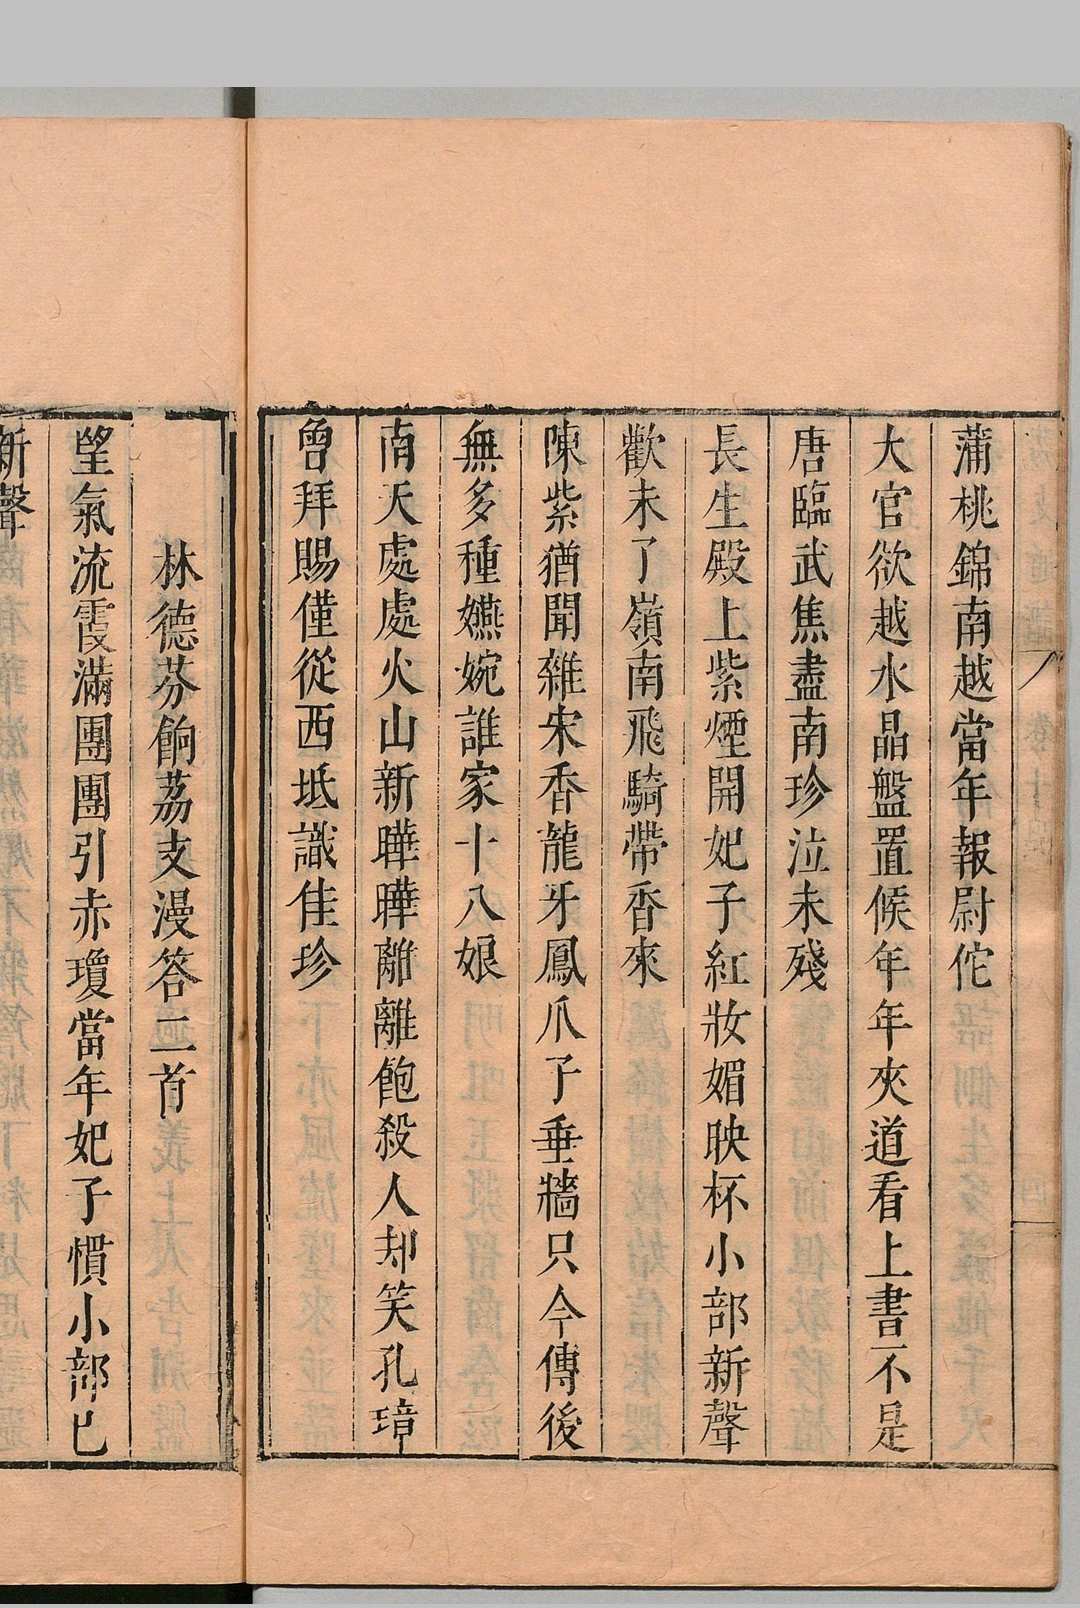 蒲桃錦南越當年報尉佗
大官欲越水晶盤置候年年夾道看上書不是
唐臨武焦盡南珍泣未殘
長生殿上紫煙開妃子紅妝媚映杯小部新聲
歡未了嶺南飛騎帶香來
陳紫猶聞雜宋香龍牙鳳爪子垂牆只今傳後
無多種嬿婉誰家十八娘
南天處處火山新曄曄離離飽殺人却笑孔璋
曾拜賜僅從西坻識佳珍
林德芬餉荔支漫答二首
望氣流霞滿團團引赤瓊當年妃子慣小部已
新聲